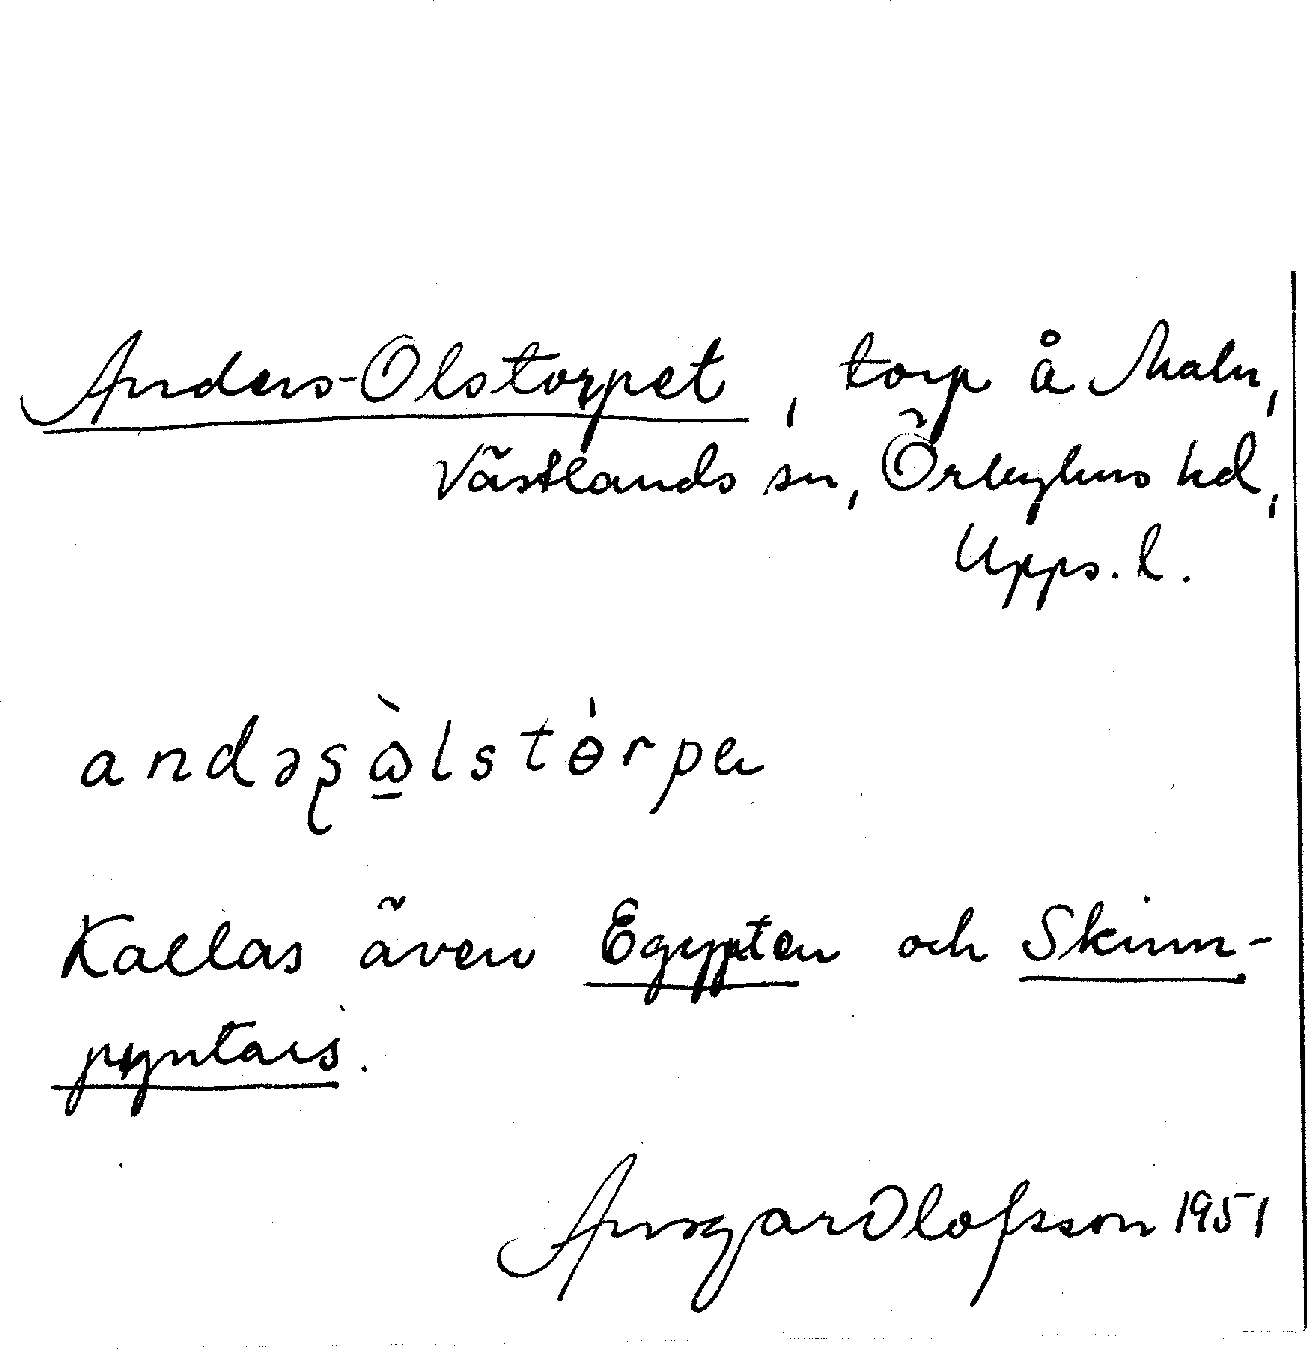 Anders-Olstorpet, torp å Maln,
Västlands sn, Örbyhus hd,
Upps. l.
andəʂὼ̲lstɵ́rpeː
Kallas även Egypten och Skinn-
pyntars.
Ansgar Olofsson 1951